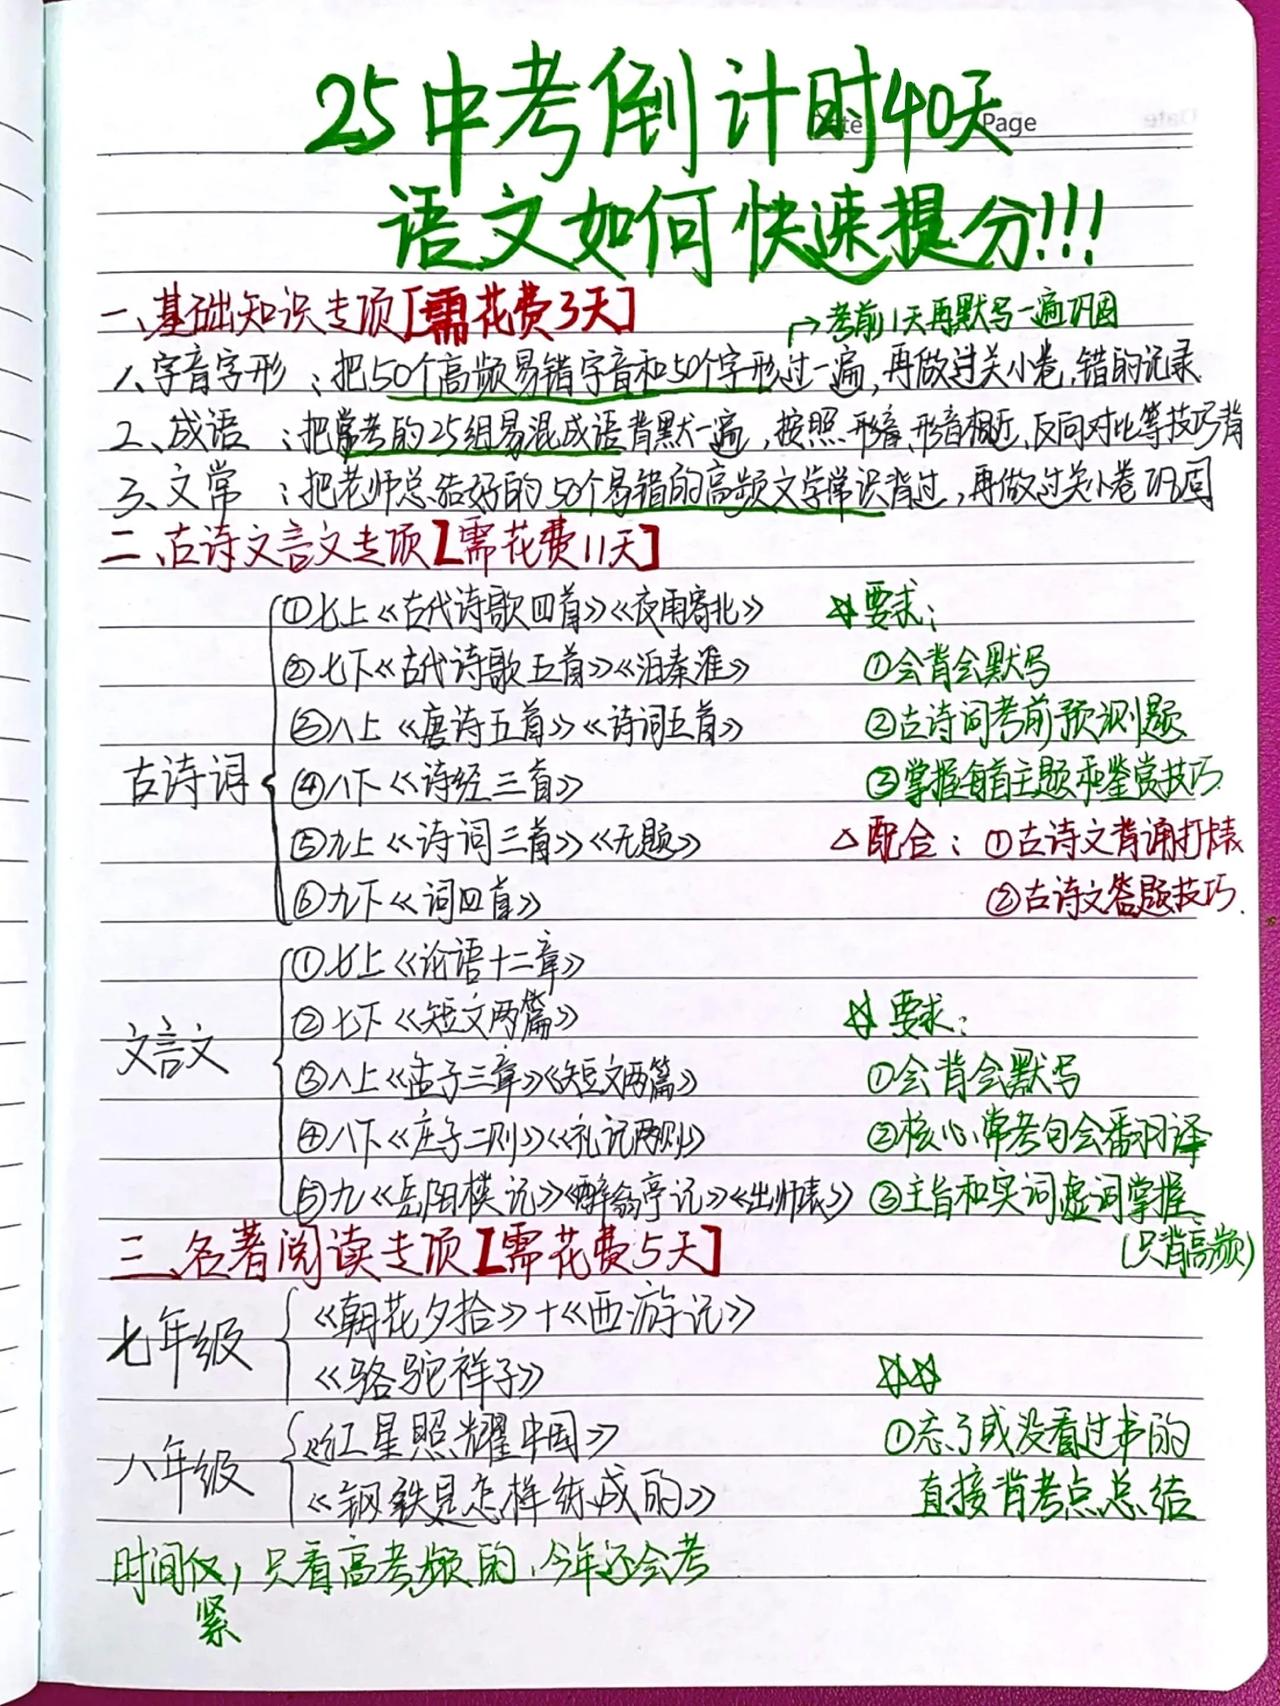 25中考倒计时40天
Date Page
语文如何快速提分!!!
一、基础知识专项[需花费3天]
→考前1天再默写一遍巩固
1、字音字形:把50个高频易错字音和50个字形过一遍,再做过关小卷,错的记录
2、成语:把常考的25组易混成语背默一遍,按照形音、形音相近、反向对比等技巧背
3、文常:把老师总结好的50个易错的高频文学常识背过,再做过关小卷巩固
二、古诗文言文专项[需花费11天]
古诗词
①七上《古代诗歌四首》《夜雨寄北》
②七下《古代诗歌五首》《泊秦淮》
③八上《唐诗五首》《诗词五首》
④八下《诗经三首》
⑤九上《诗词三首》《无题》
⑥九下《词四首》
☆要求:
①会背会默写
②古诗词考前预测题
③掌握每首主题和鉴赏技巧
△配合:①古诗文背诵打表
②古诗文答题技巧.
文言文
①七上《论语十二章》
②七下《短文两篇》
③八上《孟子三章》《短文两篇》
④八下《庄子二则》《礼记两则》
⑤九《岳阳楼记》《醉翁亭记》《出师表》
☆要求:
①会背会默写
②核心、常考句会翻译
③主旨和实词虚词掌握
(只背高频)
三、名著阅读专项[需花费5天]
七年级
《朝花夕拾》+《西游记》
《骆驼祥子》
八年级
《红星照耀中国》
《钢铁是怎样练成的》
☆☆
①忘了或没看过书的
直接背考点总结
时间仅,只看高考频的,今年还会考
紧